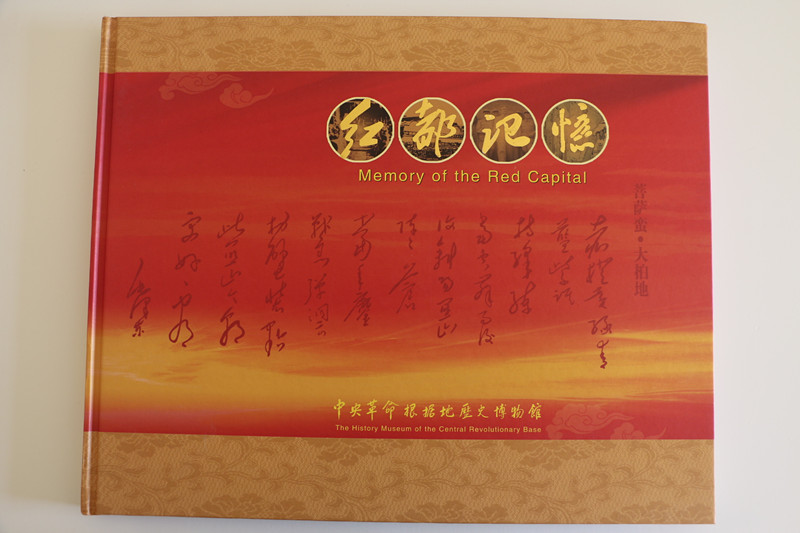 红都记忆
Memory of the Red Capital
菩萨蛮·大柏地
赤橙黄绿青
蓝紫谁
持彩练
当空舞雨后
复斜阳关山
阵阵苍
当年鏖
战急弹洞前
村壁装点
此关山今朝
更好看
毛泽东
中央革命根据地歷史博物馆
The History Museum of the Central Revolutionary Base